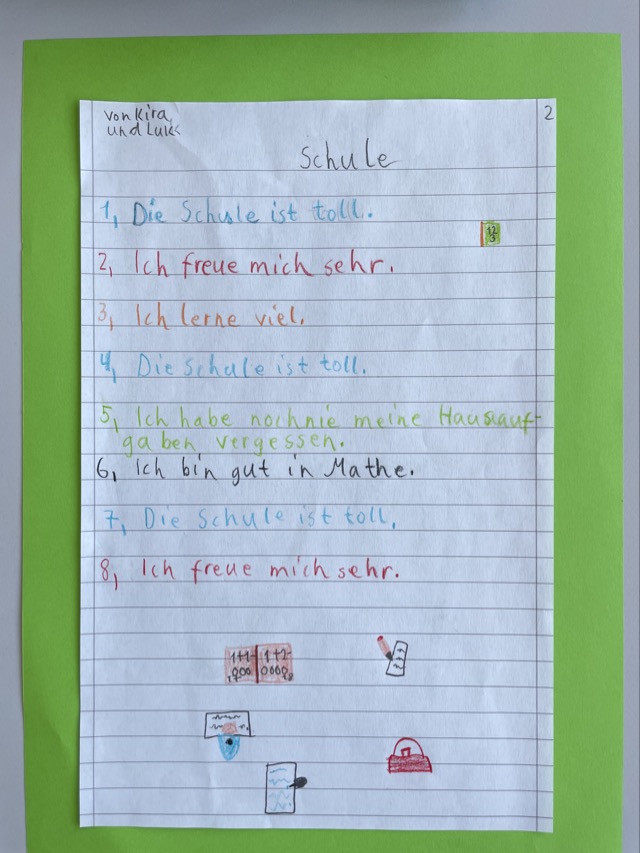 von Kira
und Luk
2
Schule
1, Die Schule ist toll.
12
3
2, Ich freue mich sehr.
3, Ich lerne viel.
4, Die Schule ist toll.
5, Ich habe nochnie meine Hausauf-
gaben vergessen.
6, Ich bin gut in Mathe.
7, Die Schule ist toll.
8, Ich freue mich sehr.
1+1 1+2